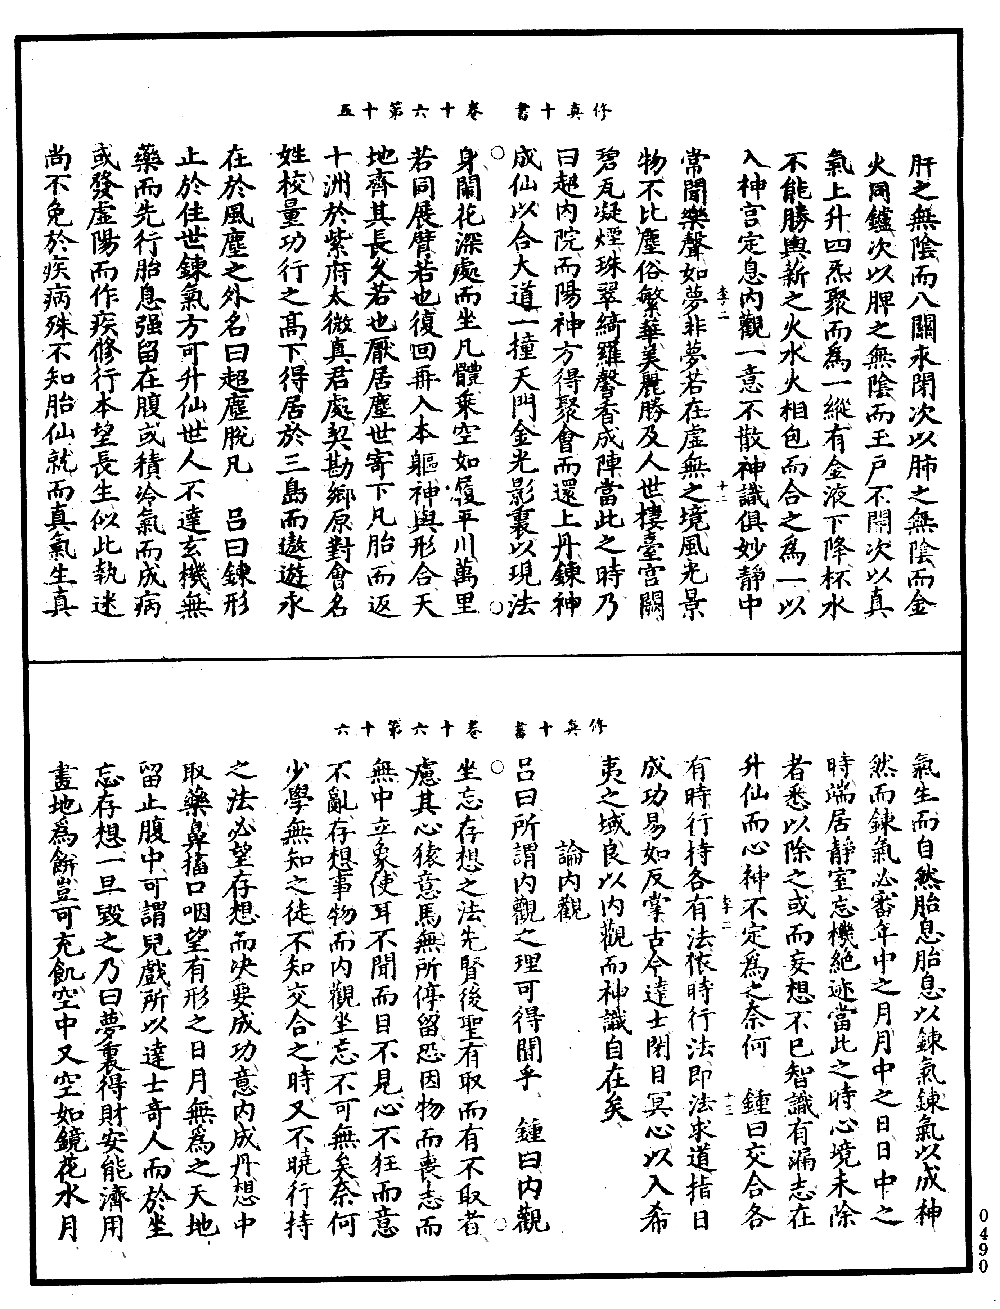 修真十書　卷十六第十五
肝之無陰而八關永閉次以肺之無陰而金
火同鑪次以脾之無陰而玉戶不開次以真
氣上升四炁聚而為一縱有金液下降杯水
不能勝輿薪之火水火相包而合之為一以
入神宮定息內觀一意不散神識俱妙靜中
李二　十二
常聞樂聲如夢非夢若在虛無之境風光景
物不比塵俗繁華美麗勝及人世樓臺宮闕
碧瓦凝煙珠翠綺羅馨香成陣當此之時乃
曰超內院而陽神方得聚會而還上丹鍊神
成仙以合大道一撞天門金光影裏以現法
身鬧花深處而坐凡體乘空如履平川萬里
若同展臂若也復回再入本軀神與形合天
地齊其長久若也厭居塵世寄下凡胎而返
十洲於紫府太微真君處契勘鄉原對會名
姓校量功行之高下得居於三島而遨遊永
在於風塵之外名曰超塵脫凡　呂曰鍊形
止於住世鍊氣方可升仙世人不達玄機無
藥而先行胎息强留在腹或積冷氣而成病
或發虛陽而作疾修行本望長生似此執迷
尚不免於疾病殊不知胎仙就而真氣生真
修真十書　卷十六第十六
氣生而自然胎息胎息以鍊氣鍊氣以成神
然而鍊氣必審年中之月月中之日日中之
時端居靜室忘機絕迹當此之時心境未除
者悉以除之或而妄想不已智識有漏志在
升仙而心神不定為之奈何　鍾曰交合各
李二　十三
有時行持各有法依時行法即法求道指日
成功易如反掌古今達士閉目冥心以入希
夷之域良以內觀而神識自在矣
論內觀
呂曰所謂內觀之理可得聞乎　鍾曰內觀
坐忘存想之法先賢後聖有取而有不取者
慮其心猿意馬無所停留恐因物而喪志而
無中立象使耳不聞而目不見心不狂而意
不亂存想事物而內觀坐忘不可無矣奈何
少學無知之徒不知交合之時又不曉行持
之法必望存想而決要成功意內成丹想中
取藥鼻搐口咽望有形之日月無為之天地
留止腹中可謂兒戲所以達士奇人而於坐
忘存想一旦毀之乃曰夢裏得財安能濟用
畫地為餅豈可充飢空中又空如鏡花水月
0490